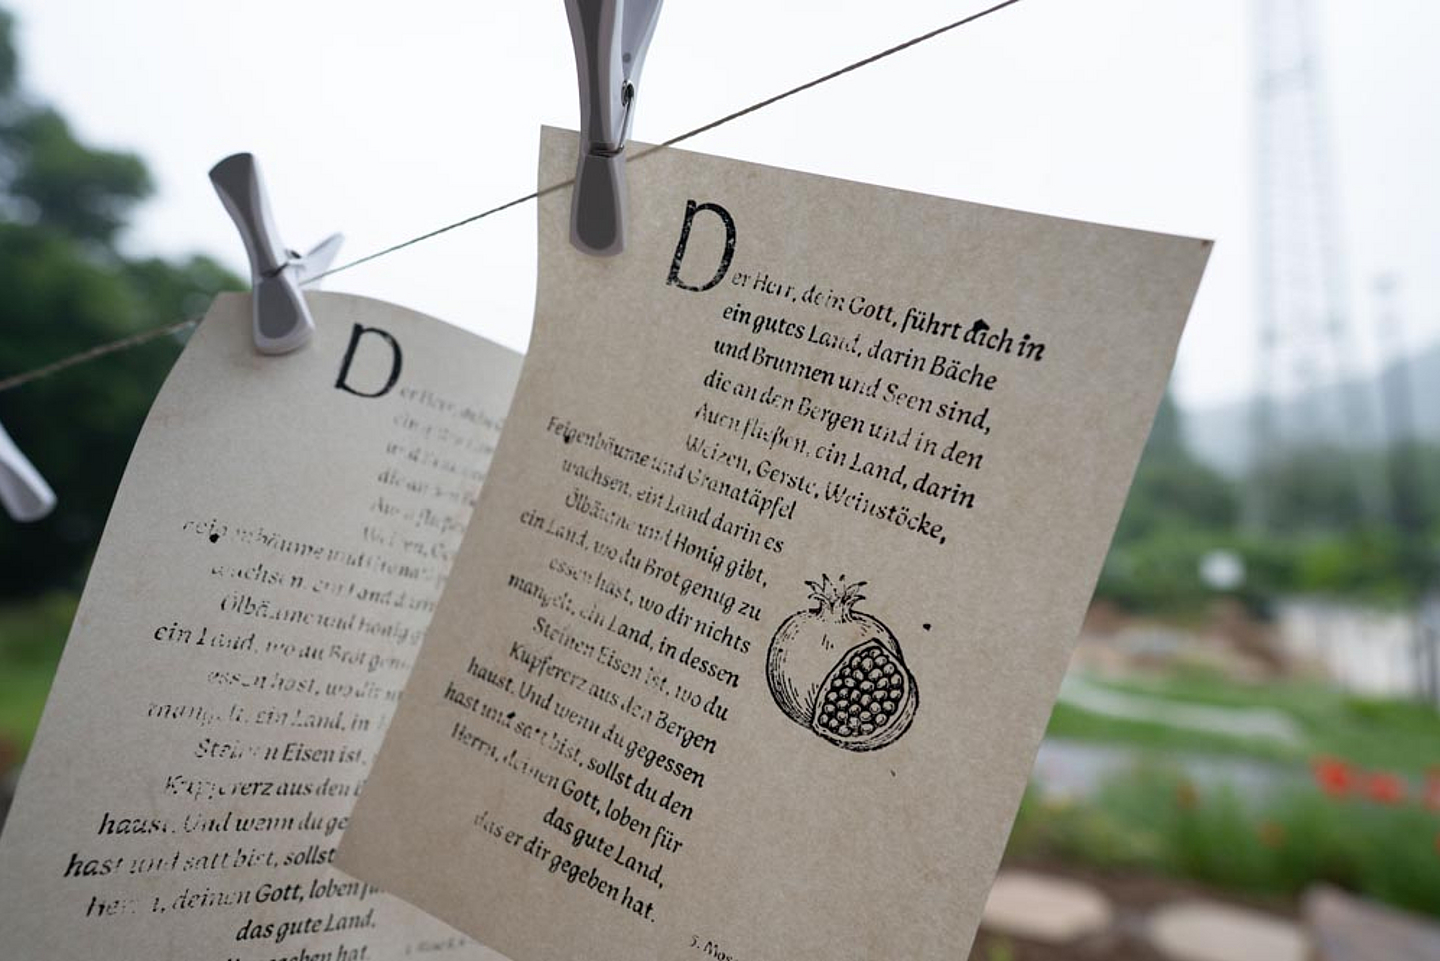 Der Herr, dein Gott, führt dich in
ein gutes Land, darin Bäche
und Brunnen und Seen sind,
die an den Bergen und in den
Auen fließen, ein Land, darin
Weizen, Gerste, Weinstöcke,
Feigenbäume und Granatäpfel
wachsen, ein Land darin es
Ölbäume und Honig gibt,
ein Land, wo du Brot genug zu
essen hast, wo dir nichts
mangelt, ein Land, in dessen
Steinen Eisen ist, wo du
Kupfererz aus den Bergen
haust. Und wenn du gegessen
hast und satt bist, sollst du den
Herrn, deinen Gott, loben für
das gute Land,
das er dir gegeben hat.
5. Mos
D
wachsen, ein Land
Ölbäume und Honig
ein Land, wo du Brot
essen hast, wo
mangelt, ein Land, in
Steinen Eisen ist,
Kupfererz aus den
haust. Und wenn du ge
hast und satt bist, sollst
Herrn, deinen Gott, loben
das gute Land,
hat.